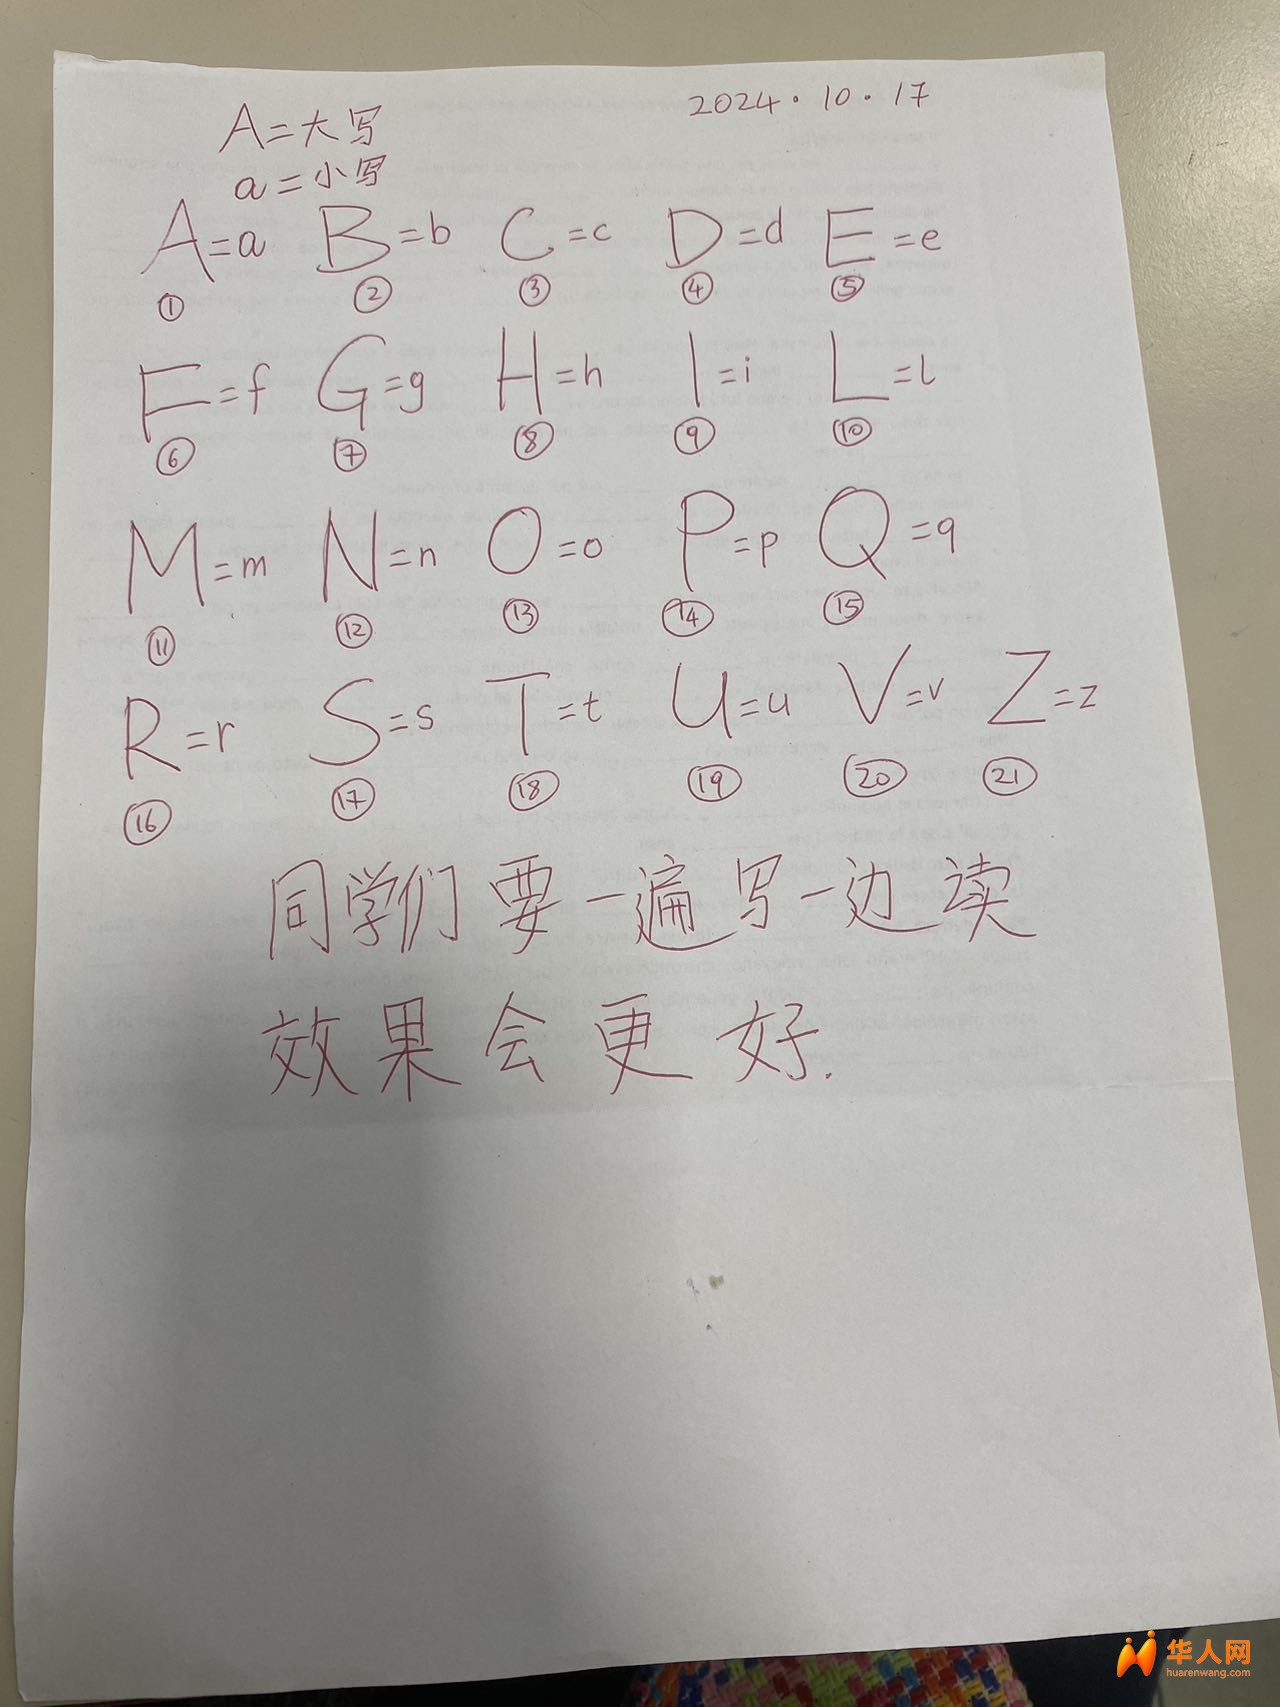 2024.10.17
A=大写
a=小写
A=a B=b C=c D=d E=e
① ② ③ ④ ⑤
F=f G=g H=h I=i L=l
⑥ ⑦ ⑧ ⑨ ⑩
M=m N=n O=o P=p Q=q
⑪ ⑫ ⑬ ⑭ ⑮
R=r S=s T=t U=u V=v Z=z
⑯ ⑰ ⑱ ⑲ ⑳ ㉑
同学们要一遍写一边读
效果会更好.
华人网
huarenwang.com